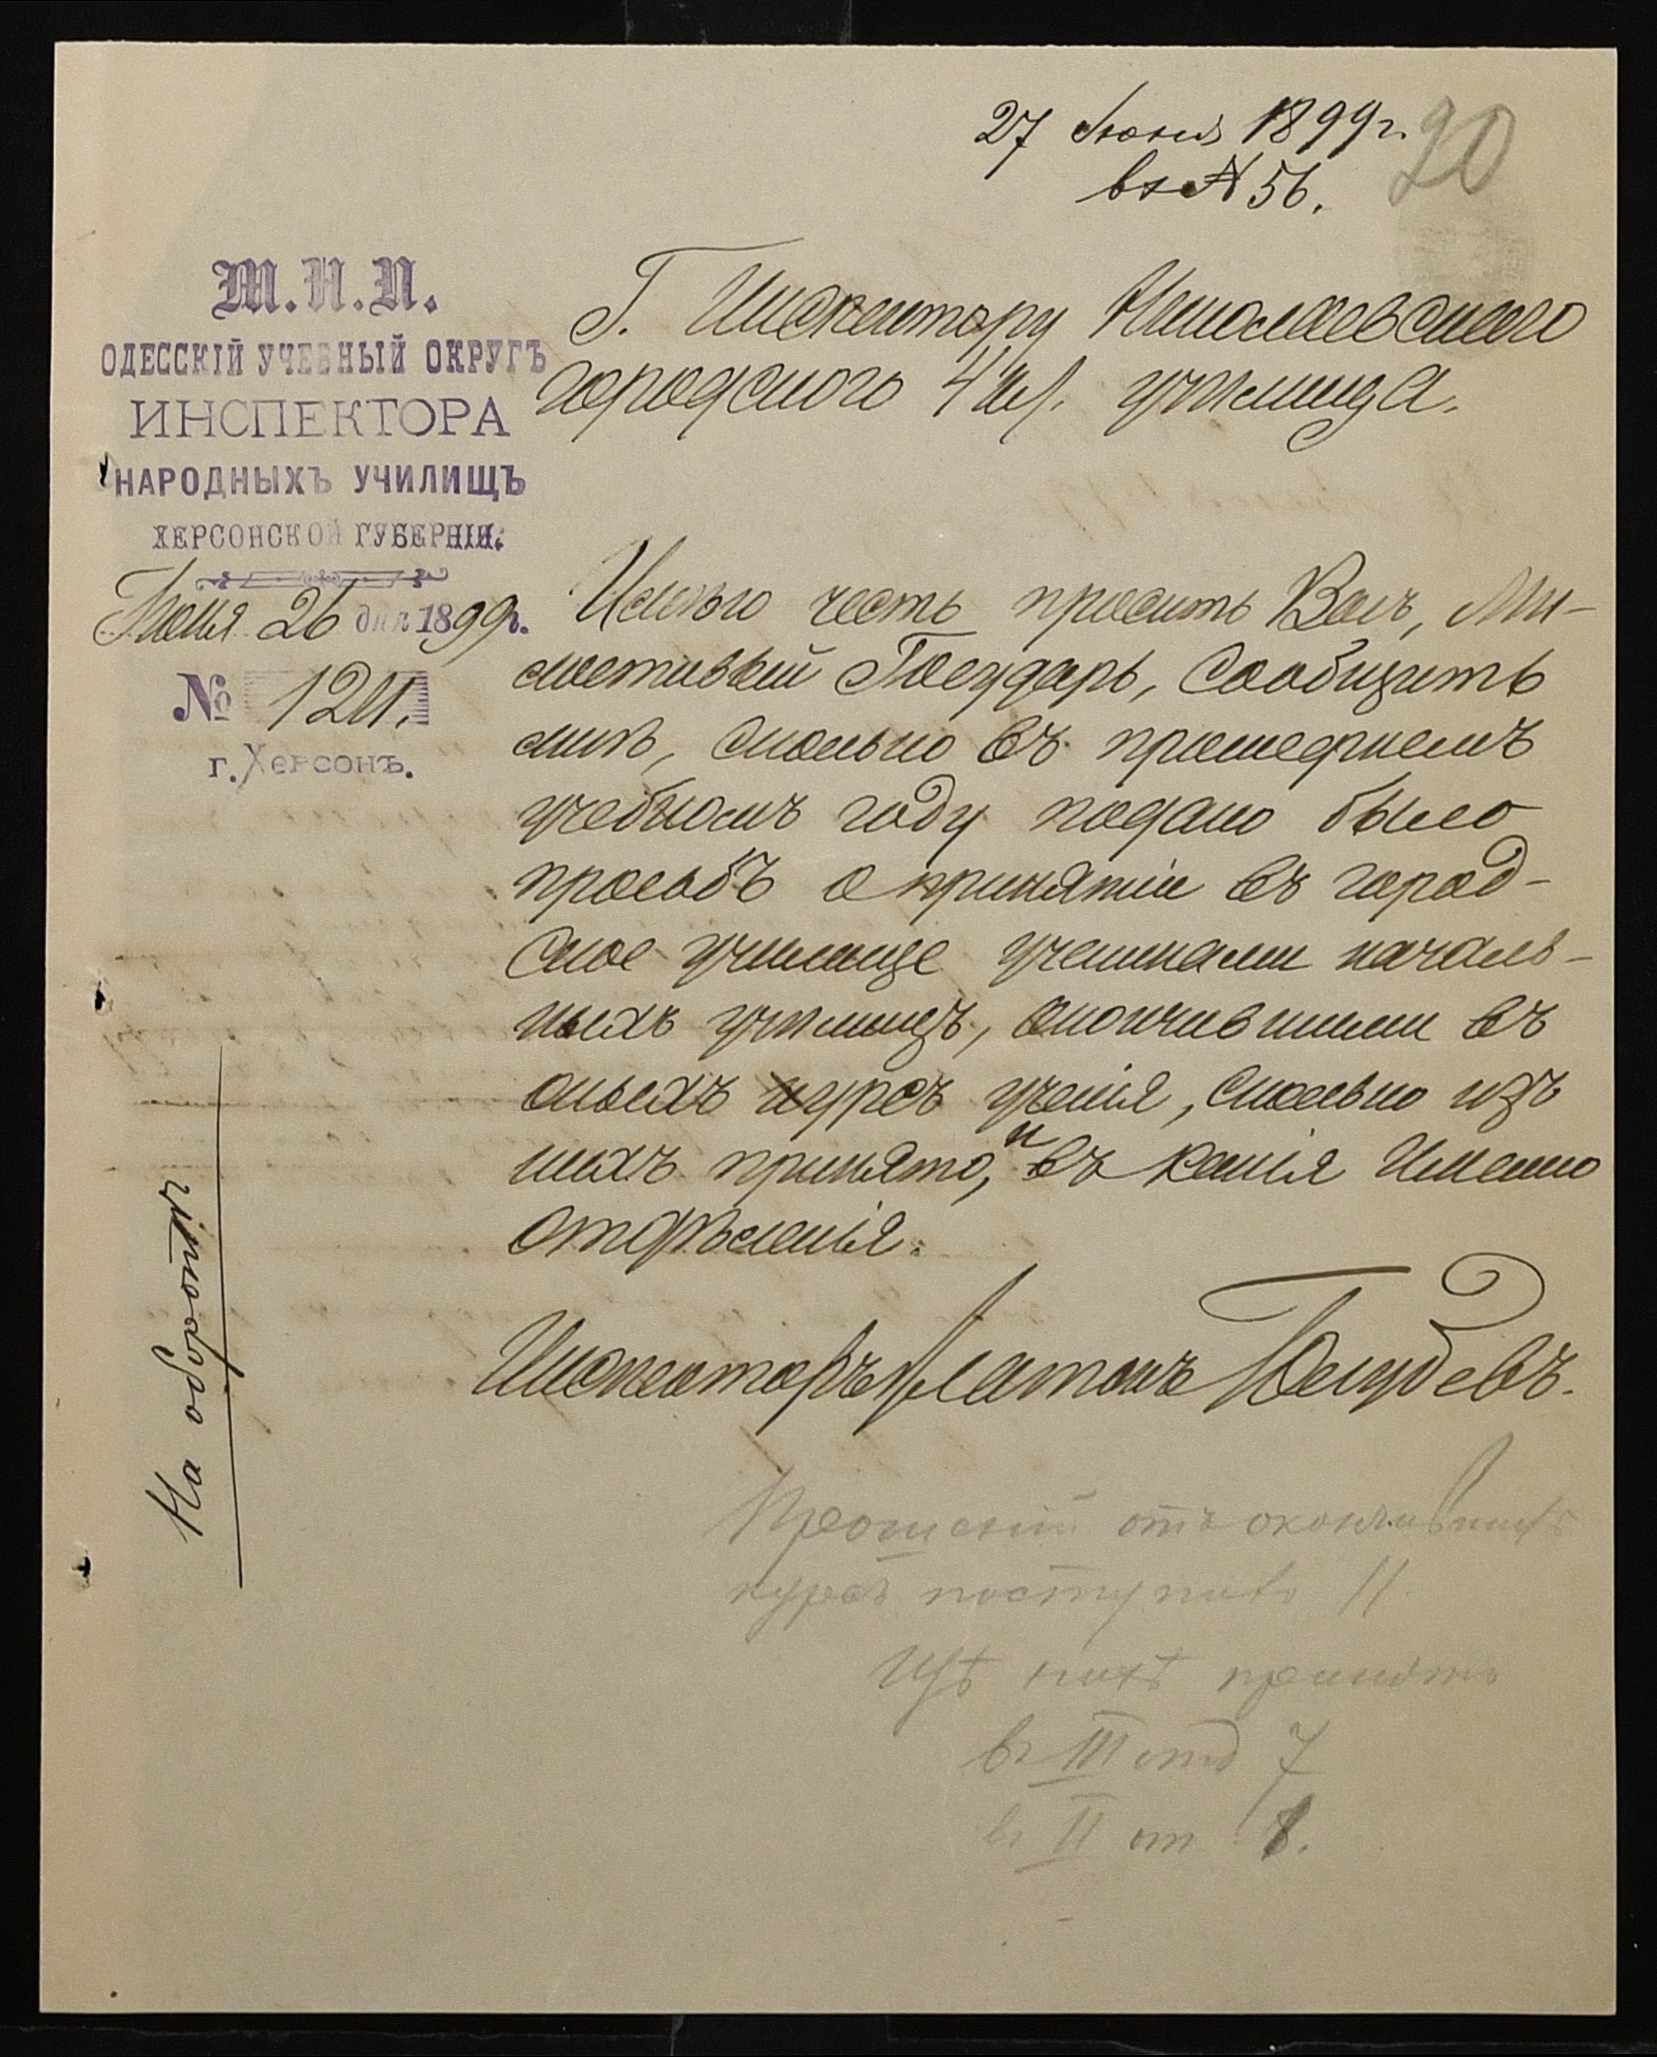 27 Июня 1899 г.
вх № 56.
20
М.Н.П.
ОДЕССКІЙ УЧЕБНЫЙ ОКРУГЪ
ИНСПЕКТОРА
НАРОДНЫХЪ УЧИЛИЩЪ
ХЕРСОНСКОЙ ГУБЕРНІИ.
Июня 26 дня 1899 г.
№ 1211.
г. Херсонъ.
Г. Инспектору Николаевскаго
городскаго 4 кл. училища.
Имѣю честь просить Васъ, Ми-
лостивый Государь, сообщить
мнѣ, сколько въ прошедшемъ
учебномъ году подано было
просьбъ о принятіи въ город-
ское училище учениками началь-
ныхъ училищъ, окончившими въ
оныхъ курсъ ученія, сколько изъ
нихъ принято, и въ какія именно
отдѣленія.
Инспекторъ Платонъ
На оборотѣ
Прошеній отъ окончившихъ
курсъ поступило 11.
Изъ нихъ принято
въ III отд 7
въ II от